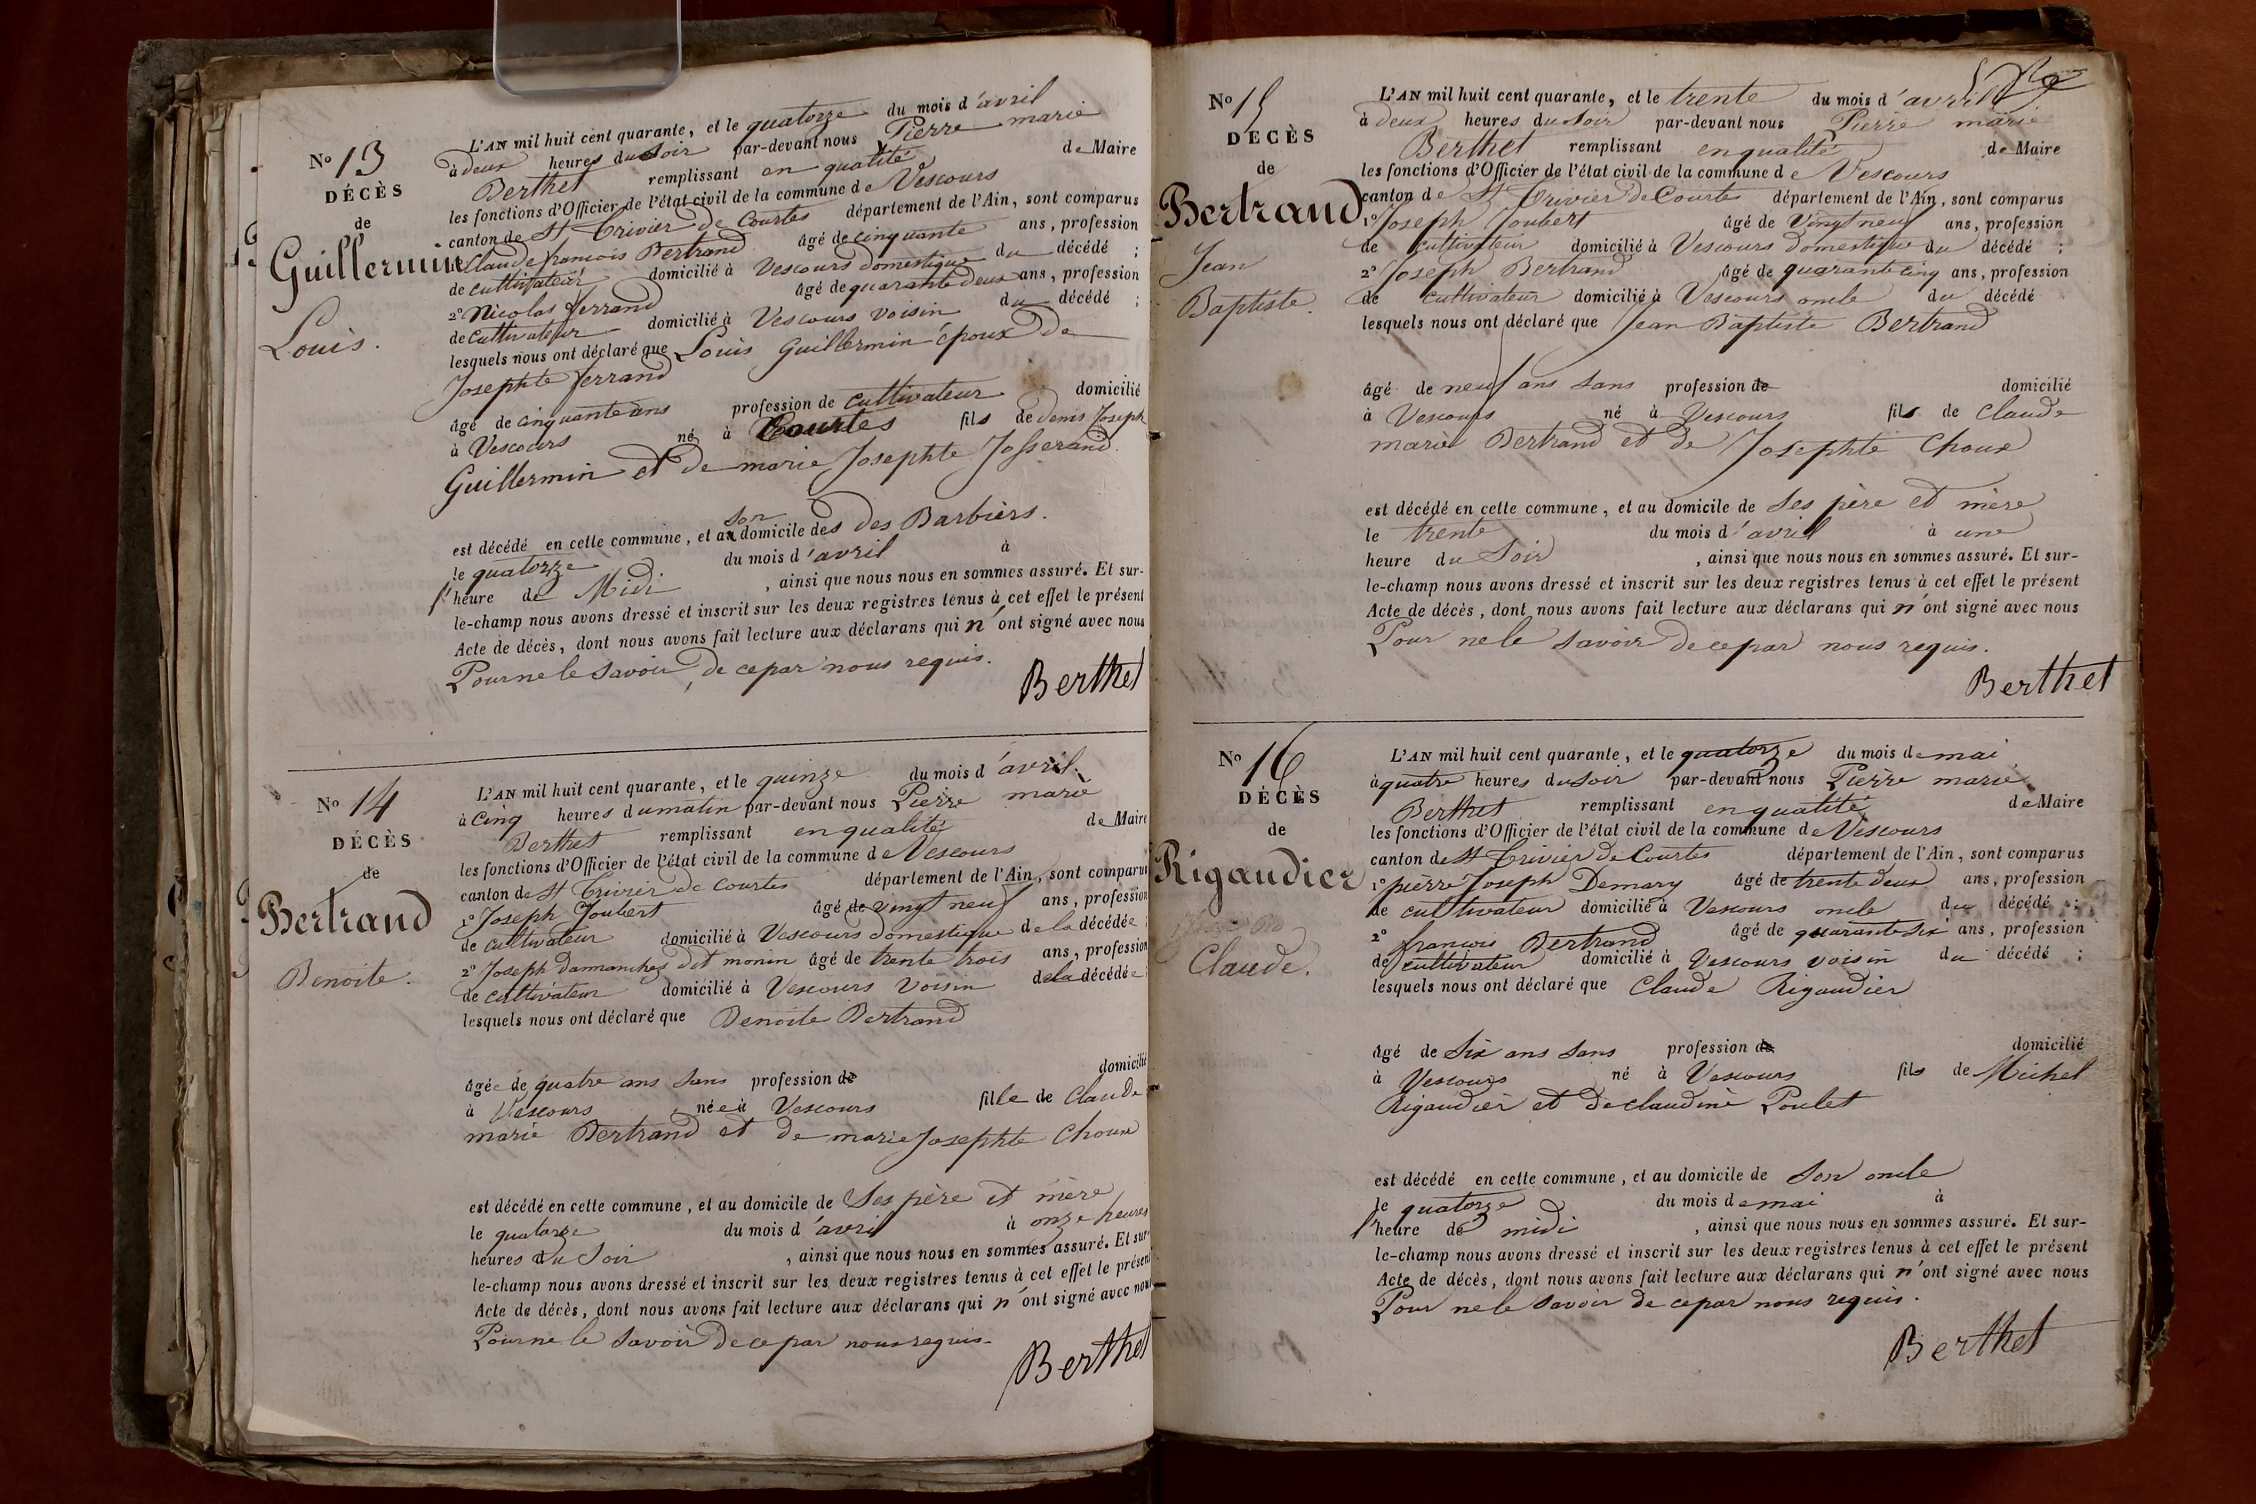 No 13
DÉCÈS
de
Guillermin
Louis.
L'AN mil huit cent quarante, et le quatorze du mois d'avril
à deux heures du Soir par-devant nous Pierre marie
Berthet remplissant en qualité de Maire
les fonctions d'Officier de l'état civil de la commune de Vescours
canton de St Trivier de Courtes département de l'Ain, sont comparus
1° Claude francois Bertrand âgé de cinquante ans, profession
de cultivateur domicilié à Vescours domestique du décédé ;
2° Nicolas ferrand âgé de quarante deux ans, profession
de cultivateur domicilié à Vescours voisin du décédé ;
lesquels nous ont déclaré que Louis Guillermin époux de
Josephte ferrand
âgé de cinquante ans profession de cultivateur domicilié
à Vescours né à Courtes fils de denis Joseph
Guillermin et de marie Josephte Josserand.
est décédé en cette commune, et au son domicile des des Barbiers.
le quatorze du mois d'avril à
l'heure de Midi, ainsi que nous nous en sommes assuré. Et sur-
le-champ nous avons dressé et inscrit sur les deux registres tenus à cet effet le présent
Acte de décès, dont nous avons fait lecture aux déclarans qui n'ont signé avec nous
Pour ne le savoir, de ce par nous requis.
Berthet
No 14
DÉCÈS
de
Bertrand
Benoite.
L'AN mil huit cent quarante, et le quinze du mois d'avril
à Cinq heures du matin par-devant nous Pierre marie
Berthet remplissant en qualité de Maire
les fonctions d'Officier de l'état civil de la commune de Vescours
canton de St Trivier de Courtes département de l'Ain, sont comparus
1° Joseph Joubert âgé de vingt neuf ans, profession
de cultivateur domicilié à Vescours domestique de la décédée ;
2° Joseph Dannanches dit monin âgé de trente trois ans, profession
de cultivateur domicilié à Vescours Voisin de la décédée
lesquels nous ont déclaré que Benoite Bertrand
âgée de quatre ans Sans profession de domicilié
à Vescours née à Vescours fille de Claude
marie Bertrand et de marie Josephte Choux
est décédé en cette commune, et au domicile de Ses père et mère
le quatorze du mois d'avril à onze heures
heures du Soir, ainsi que nous nous en sommes assuré. Et sur-
le-champ nous avons dressé et inscrit sur les deux registres tenus à cet effet le présent
Acte de décès, dont nous avons fait lecture aux déclarans qui n'ont signé avec nous
Pour ne le Savoir de ce par nous requis.
Berthet
No 15
DÉCÈS
de
Bertrand
Jean
Baptiste.
L'AN mil huit cent quarante, et le trente du mois d'avril
à deux heures du Soir par-devant nous Pierre marie
Berthet remplissant en qualité de Maire
les fonctions d'Officier de l'état civil de la commune de Vescours
canton de St Trivier de Courtes département de l'Ain, sont comparus
1° Joseph Joubert âgé de Vingt neuf ans, profession
de cultivateur domicilié à Vescours domestique du décédé ;
2° Joseph Bertrand âgé de quarante cinq ans, profession
de cultivateur domicilié à Vescours oncle du décédé
lesquels nous ont déclaré que Jean Baptiste Bertrand
âgé de neuf ans Sans profession de domicilié
à Vescours né à Vescours fils de Claude
marie Bertrand et de Josephte Choux
est décédé en cette commune, et au domicile de Ses père et mère
le trente du mois d'avril à une
heure du Soir, ainsi que nous nous en sommes assuré. Et sur-
le-champ nous avons dressé et inscrit sur les deux registres tenus à cet effet le présent
Acte de décès, dont nous avons fait lecture aux déclarans qui n'ont signé avec nous
Pour ne le Savoir de ce par nous requis.
Berthet
No 16
DÉCÈS
de
Rigaudier
Claude.
L'AN mil huit cent quarante, et le quatorze du mois de mai
à quatre heures du Soir par-devant nous Pierre marie
Berthet remplissant en qualité de Maire
les fonctions d'Officier de l'état civil de la commune de Vescours
canton de St Trivier de Courtes département de l'Ain, sont comparus
1° pierre Joseph Demary âgé de trente deux ans, profession
de cultivateur domicilié à Vescours oncle du décédé ;
2° francois Bertrand âgé de quarante six ans, profession
de cultivateur domicilié à Vescours voisin du décédé ;
lesquels nous ont déclaré que Claude Rigaudier
âgé de Six ans Sans profession de domicilié
à Vescours né à Vescours fils de Michel
Rigaudier et de claudine Poulet
est décédé en cette commune, et au domicile de Son oncle
le quatorze du mois de mai à
l'heure de midi, ainsi que nous nous en sommes assuré. Et sur-
le-champ nous avons dressé et inscrit sur les deux registres tenus à cet effet le présent
Acte de décès, dont nous avons fait lecture aux déclarans qui n'ont signé avec nous
Pour ne le Savoir de ce par nous requis.
Berthet